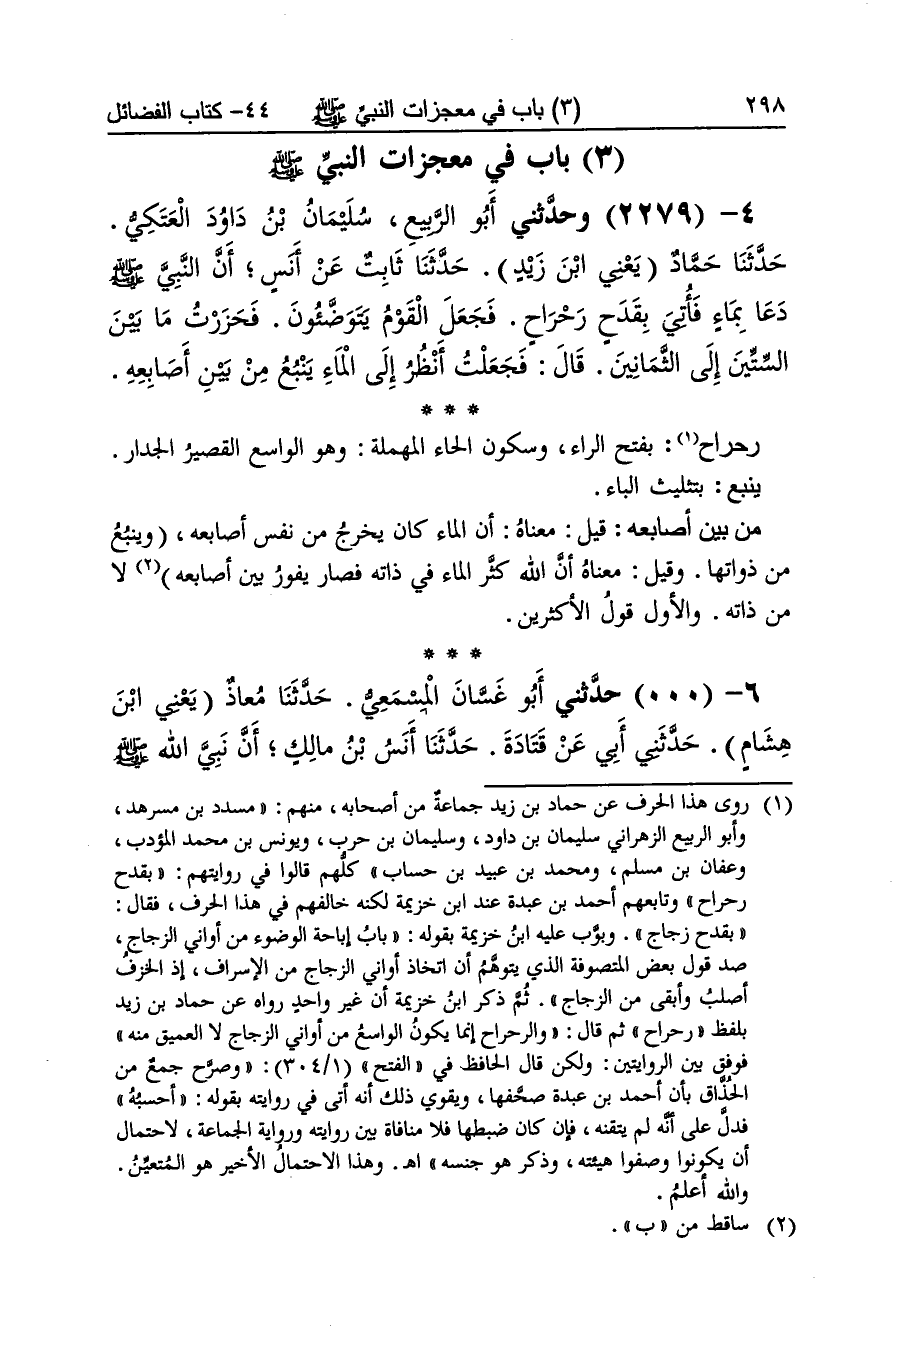 ٢٩٨ (٣) باب في معجزات النبيِّ ﷺ ٤٤- كتاب الفضائل
(٣) باب في معجزات النبيِّ ﷺ
٤- (٢٢٧٩) وحدَّثني أَبُو الرَّبِيعِ، سُلَيْمَانُ بْنُ دَاوُدَ الْعَتَكِيُّ.
حَدَّثَنَا حَمَّادٌ (يَعْنِي ابْنَ زَيْدٍ). حَدَّثَنَا ثَابِتٌ عَنْ أَنَسٍ؛ أَنَّ النَّبِيَّ ﷺ
دَعَا بِمَاءٍ فَأُتِيَ بِقَدَحٍ رَحْرَاحٍ. فَجَعَلَ الْقَوْمُ يَتَوَضَّئُونَ. فَحَزَرْتُ مَا بَيْنَ
السِّتِّينَ إِلَى الثَّمَانِينَ. قَالَ: فَجَعَلْتُ أَنْظُرُ إِلَى الْمَاءِ يَنْبُعُ مِنْ بَيْنِ أَصَابِعِهِ.
* * *
رحراح(١): بفتح الراء، وسكون الحاء المهملة: وهو الواسع القصيرُ الجدار.
ينبع: بتثليث الباء.
من بين أصابعه: قيل: معناهُ: أن الماء كان يخرجُ من نفس أصابعه، (وينبُعُ
من ذواتها. وقيل: معناهُ أنَّ الله كثَّر الماء في ذاته فصار يفورُ بين أصابعه)(٢) لا
من ذاته. والأول قولُ الأكثرين.
* * *
٦- (٠٠٠) حدَّثني أَبُو غَسَّانَ الْمِسْمَعِيُّ. حَدَّثَنَا مُعاذٌ (يَعْنِي ابْنَ
هِشَامٍ). حَدَّثَنِي أَبِي عَنْ قَتَادَةَ. حَدَّثَنَا أَنَسُ بْنُ مالِكٍ؛ أَنَّ نَبِيَّ الله ﷺ
(١) روى هذا الحرف عن حماد بن زيد جماعةٌ من أصحابه، منهم: «مسدد بن مسرهد،
وأبو الربيع الزهراني سليمان بن داود، وسليمان بن حرب، ويونس بن محمد المؤدب،
وعفان بن مسلم، ومحمد بن عبيد بن حساب» كلُّهم قالوا في روايتهم: «بقدح
رحراح» وتابعهم أحمد بن عبدة عند ابن خزيمة لكنه خالفهم في هذا الحرف، فقال:
«بقدح زجاج». وبوَّب عليه ابنُ خزيمة بقوله: «بابُ إباحة الوضوء من أواني الزجاج،
صد قول بعض المتصوفة الذي يتوهَّمُ أن اتخاذ أواني الزجاج من الإسراف، إذ الخزفُ
أصلبُ وأبقى من الزجاج». ثُمَّ ذكر ابنُ خزيمة أن غير واحدٍ رواه عن حماد بن زيد
بلفظ «رحراح» ثم قال: «والرحراح إنما يكونُ الواسعُ من أواني الزجاج لا العميق منه»
فوفق بين الروايتين: ولكن قال الحافظ في «الفتح» (٣٠٤/١): «وصرَّح جمعٌ من
الحُذَّاق بأن أحمد بن عبدة صحَّفها، ويقوي ذلك أنه أتى في روايته بقوله: «أحسبُهُ»
فدلَّ على أنَّه لم يتقنه، فإن كان ضبطها فلا منافاة بين روايته ورواية الجماعة، لاحتمال
أن يكونوا وصفوا هيئته، وذكر هو جنسه» اهـ. وهذا الاحتمالُ الأخير هو المُتعيِّنُ.
والله أعلمُ.
(٢) ساقط من «ب».